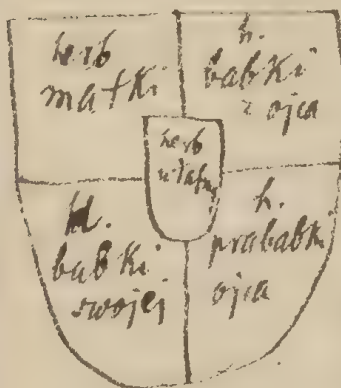 herb
matki
h.
babki
z ojca
herb
własny
h.
babki
swojej
h.
prababki
ojca